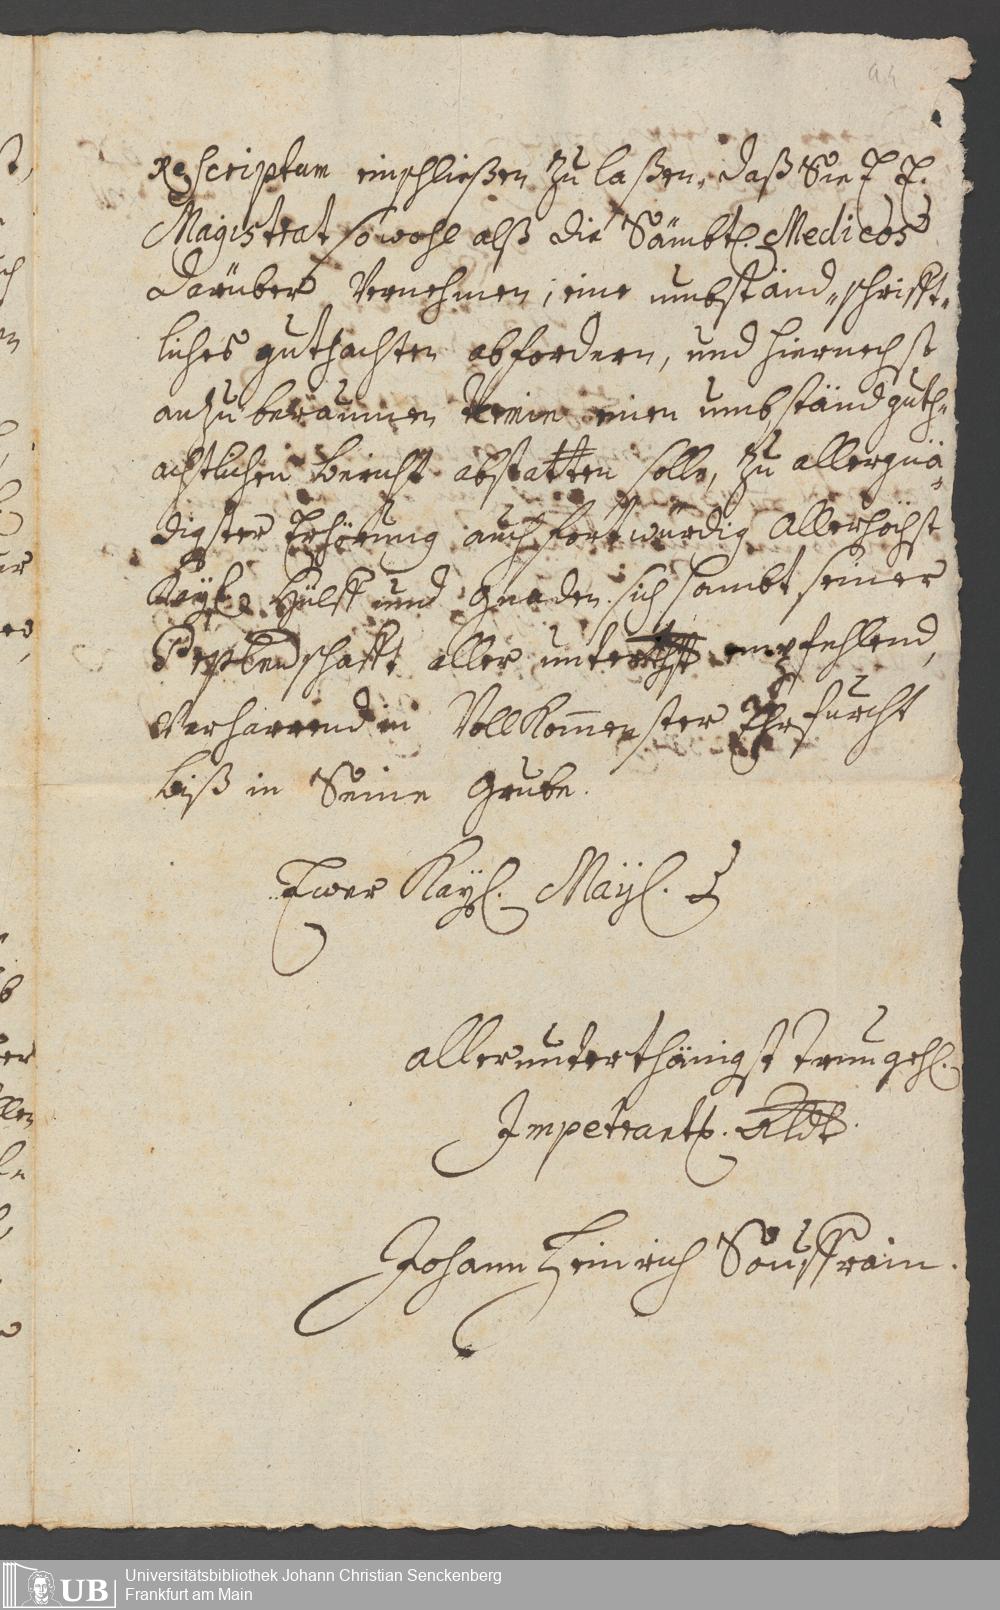 Rescriptum einschließen zu laßen, daß Sie E. E.
Magistrat sowohl alß die Sämbtl. Medicos
darüber Vernehmen, eine umbständ„schrifft„
liches guthachten abfordern, und hiernechst
anzuberaumen termin einen umbständ guth„
achtlichen bericht abstatten solle, zu allergnä„
digster Erhörung auch fortwürdig Allerhöchst
Kayl. Hülff und Gnaden sich sambt seiner
aller unterthgst empfehlend,
Verharrend in Vollkommenster Ehrfurcht
biß in Seine Grube.
Ewer Kayl. Mayl.
allerunterthänigst treu gehl.
Impetrant.
Johann Heinrich Souffrain.
Universitätsbibliothek Johann Christian Senckenberg
Frankfurt am Main
UB